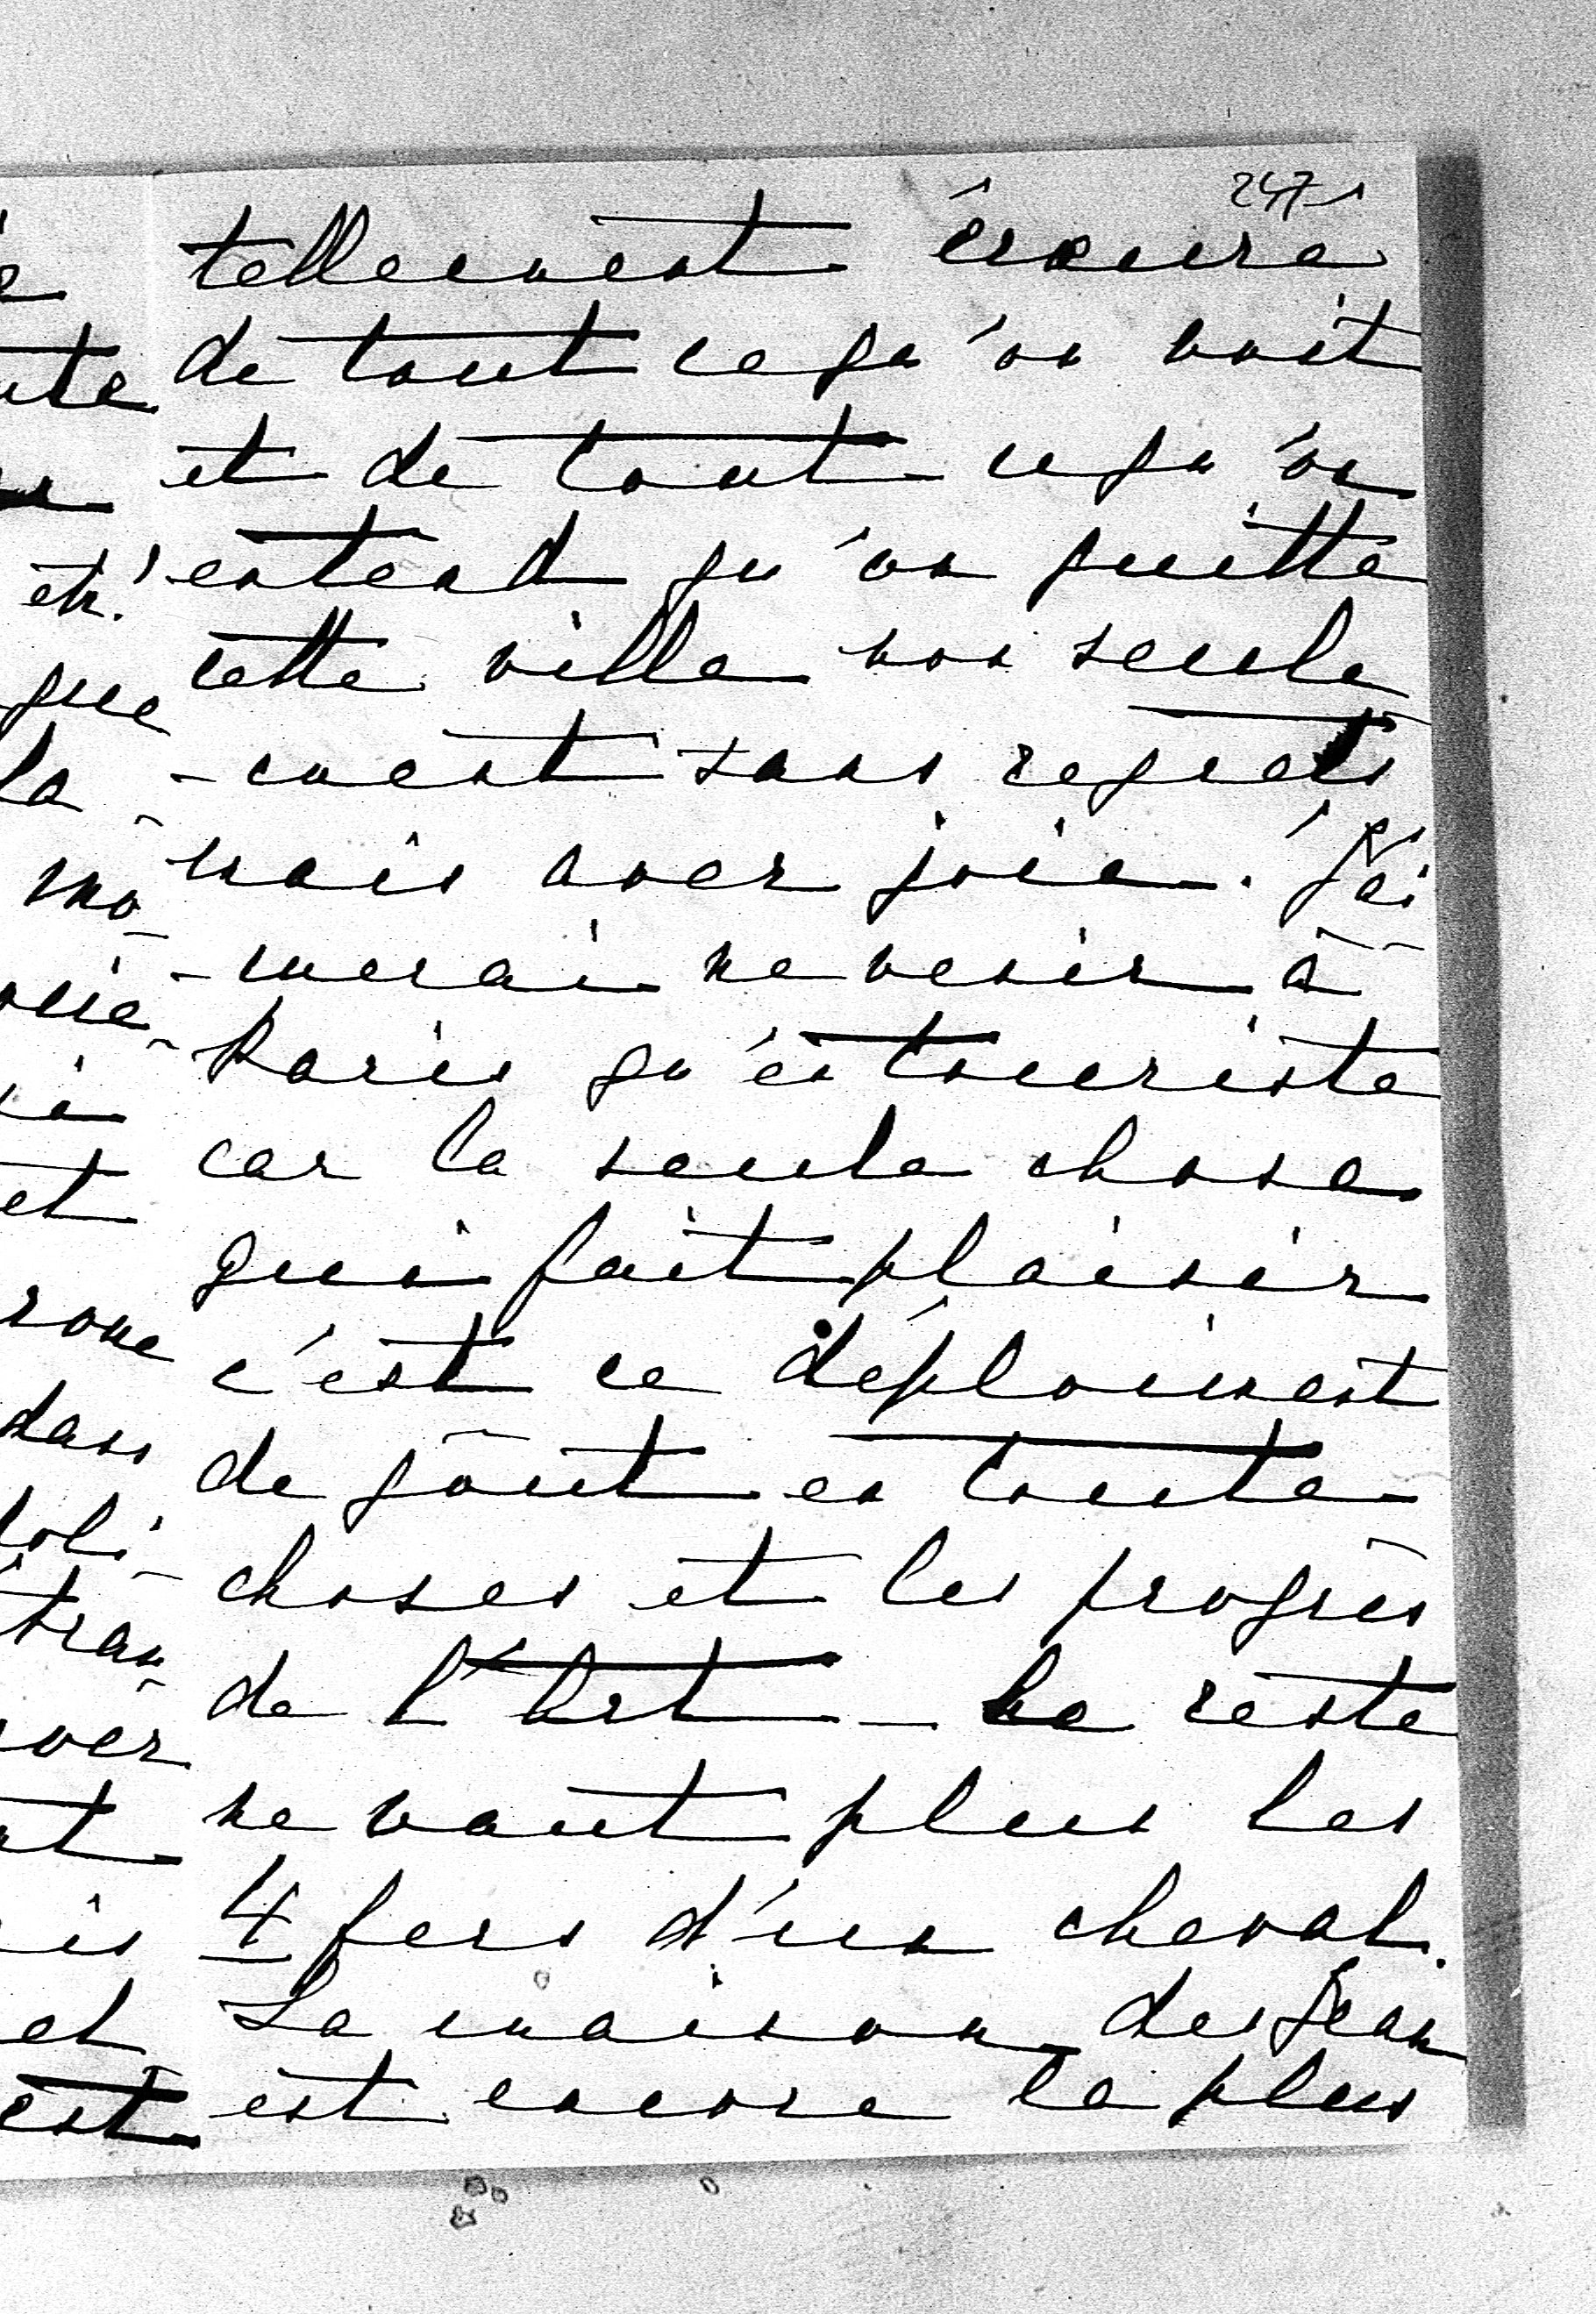 2471
tellement écœuré
de tout ce qu'on voit
et de tout ce qu'on
entend qu'on quitte
cette ville non seule
-ment sans regrets
mais avec joie. J'ai
-merai ne venir à
Paris qu'en touriste
car la seule chose
qui fait plaisir
c'est ce déploiment
de goût en toute
choses et les progrès
de l'Art _ Le reste
ne vaut plus les
4 fers d'un cheval.
La maison des Jean
est encore la plus
ute
eh!
que
la
mo-
et
rome
dans
et
est